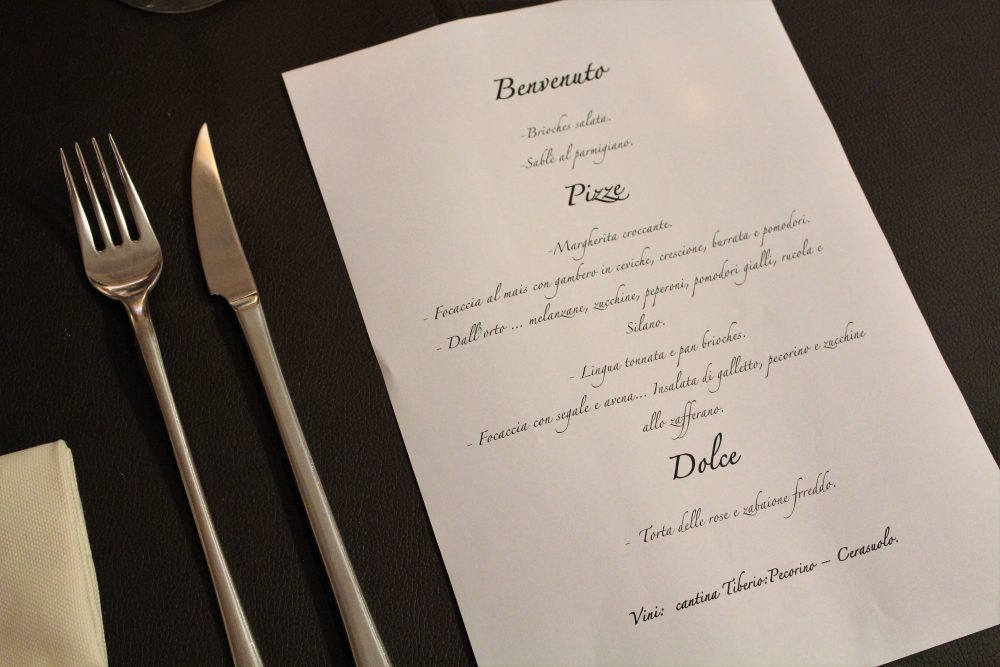 Benvenuto
-Brioches salata.
-Sablè al parmigiano.
Pizze
-Margherita croccante.
- Focaccia al mais con gambero in ceviche, crescione, burrata e pomodori.
- Dall'orto ... melanzane, zucchine, peperoni, pomodori gialli, rucola e
Silano.
- Lingua tonnata e pan brioches.
- Focaccia con segale e avena... Insalata di galletto, pecorino e zucchine
allo zafferano.
Dolce
- Torta delle rose e zabaione frreddo.
Vini: cantina Tiberio:Pecorino – Cerasuolo.